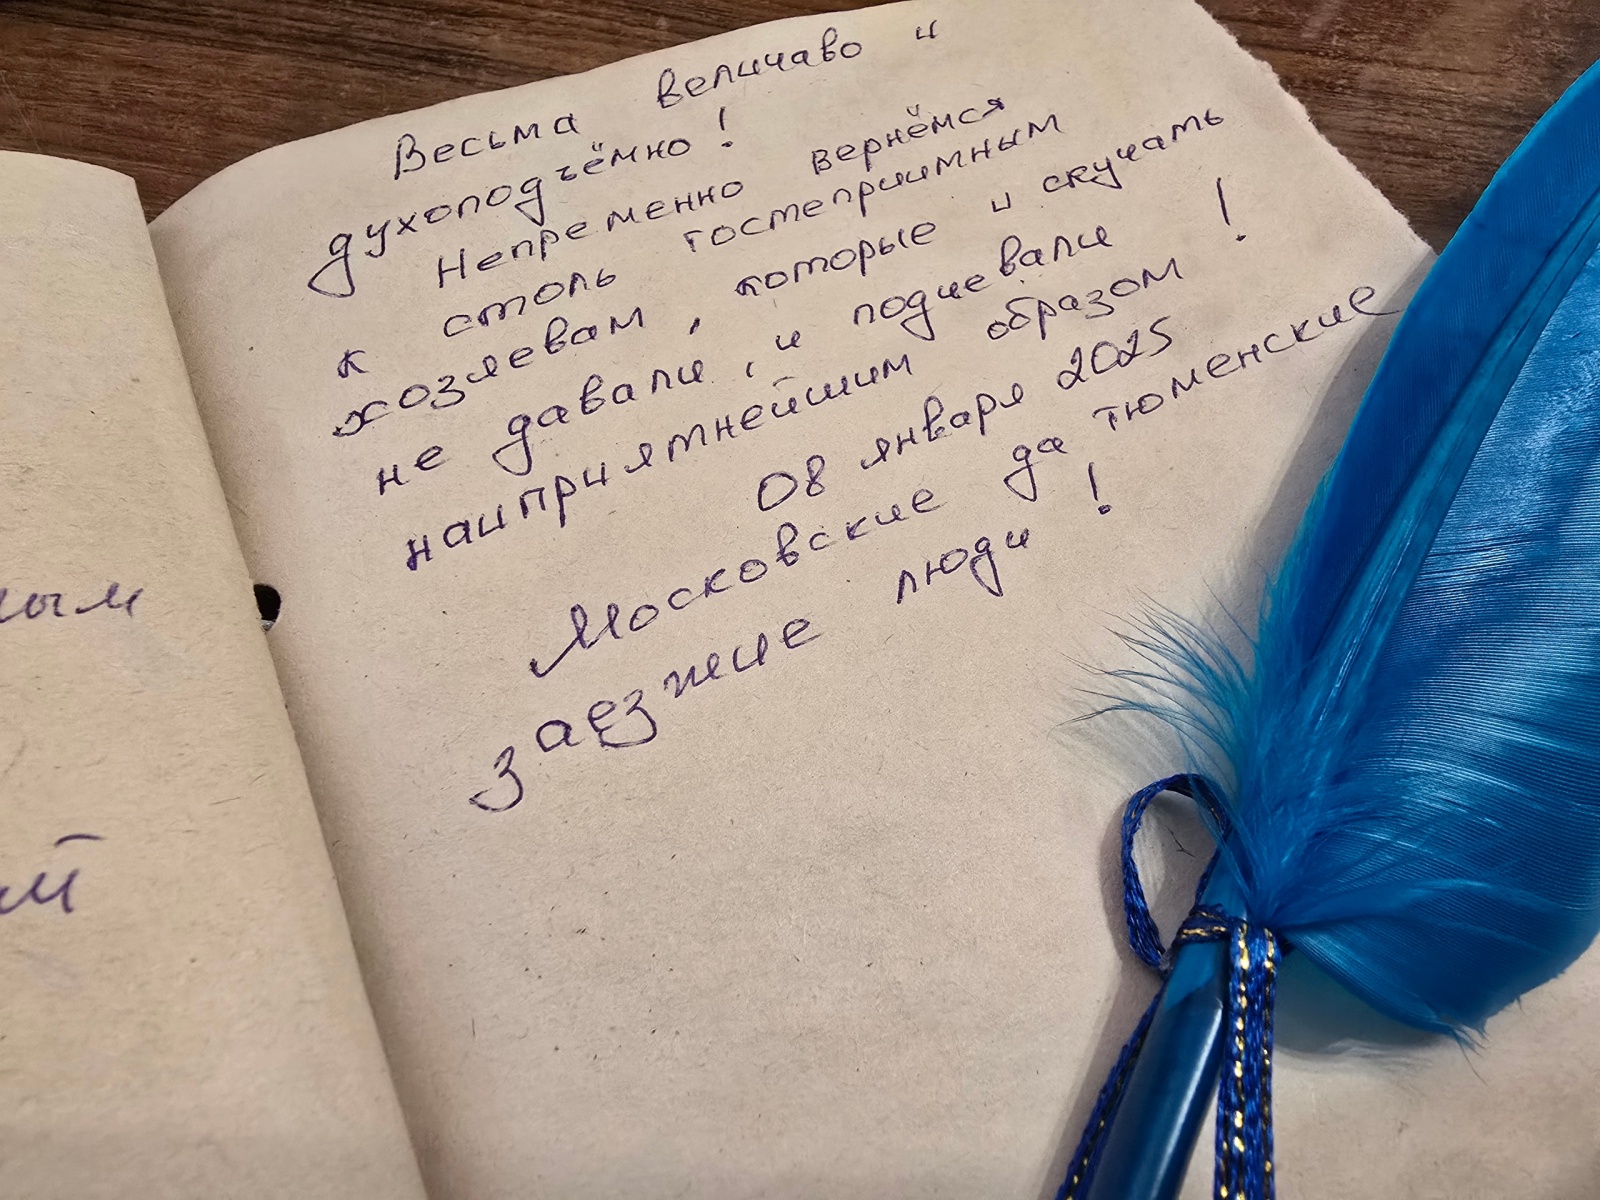 Весьма величаво и
духоподъёмно!
Непременно вернёмся
к столь гостеприимным
хозяевам, которые и скучать
не давали, и подчевали !
наиприятнейшим образом
08 января 2025
Московские да тюменские
заезжие люди !